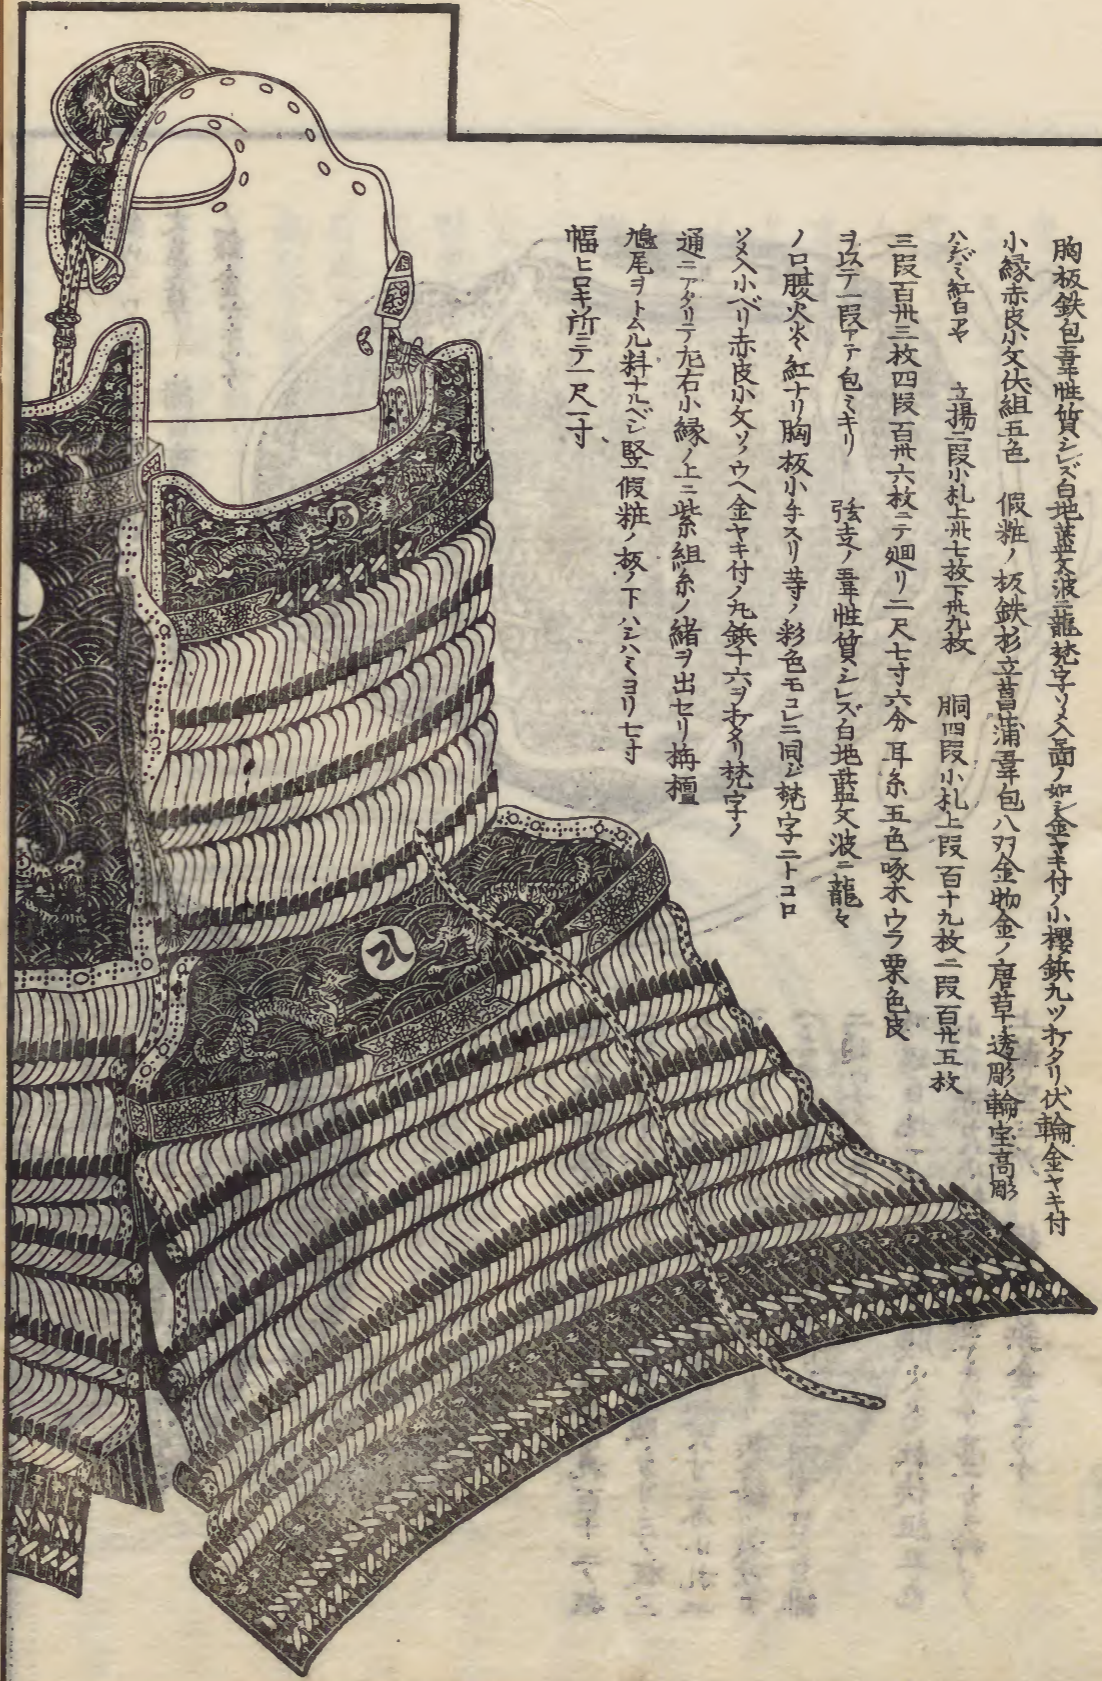 胸板鉄包韋性質シレズ白地藍文波ニ龍梵字ソメ入圖ノ如シ金ヤキ付ノ小櫻鋲九ツ打タリ伏輪金ヤキ付
小縁赤皮小文伏組五色　假粧ノ板鉄杉立菖蒲韋包八双金物金ノ唐草透彫輪宝高彫
ハシバミ紅白アヤ　立揚二段小札上卅七枚下卅九枚　胴四段小札上段百十九枚二段百廿五枚
三段百卅三枚四段百卅六枚ニテ廻リ二尺七寸六分耳糸五色啄木ウラ栗色皮
ヲ以テ一段アテ包ミキリ　弦走ノ韋性質シレズ白地藍文波ニ龍々
ノ口腹火炎紅ナリ胸板小手スリ等ノ彩色モコレニ同ジ梵字二トコロ
ソメ入小ベリ赤皮小文ソノウヘ金ヤキ付ノ丸鋲十六ヲ打タリ梵字ノ
通ニアタリテ左右小縁ノ上ニ紫組糸ノ緒ヲ出セリ栴檀
鳩尾ヲトムル料ナルベシ竪假粧ノ板ノ下ハシハミヨリ七寸
幅ヒロキ所ニテ一尺一寸